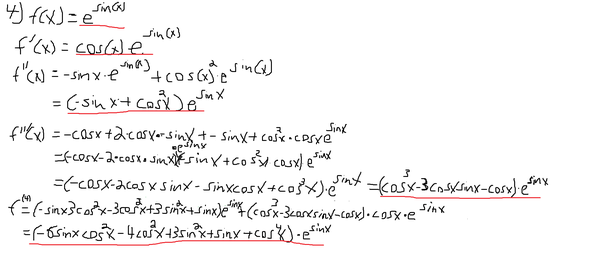 4) f(x) = e^sin(x)
f'(x) = cos(x) e^sin(x)
f''(x) = -sinx·e^sin(x) + cos(x)²·e^sin(x)
= (-sinx + cos²x) e^sinx
f'''(x) = -cosx + 2·cosx·-sinx + -sinx + cos²x·cosx e^sinx
·e^sinx
= (-cosx - 2·cosx·sinx)( -sinx + cos²x) cosx) e^sinx
= (-cosx - 2cosx sinx - sinxcosx + cos³x)·e^sinx = (cos³x - 3cosxsinx - cosx)·e^sinx
f^(4) = (-sinx3cos²x - 3cos²x + 3sin²x + sinx) e^sinx + (cos³x - 3cosxsinx - cosx)·cosx·e^sinx
= (-6sinx cos²x - 4cos²x + 3sin²x + sinx + cos⁴x)·e^sinx